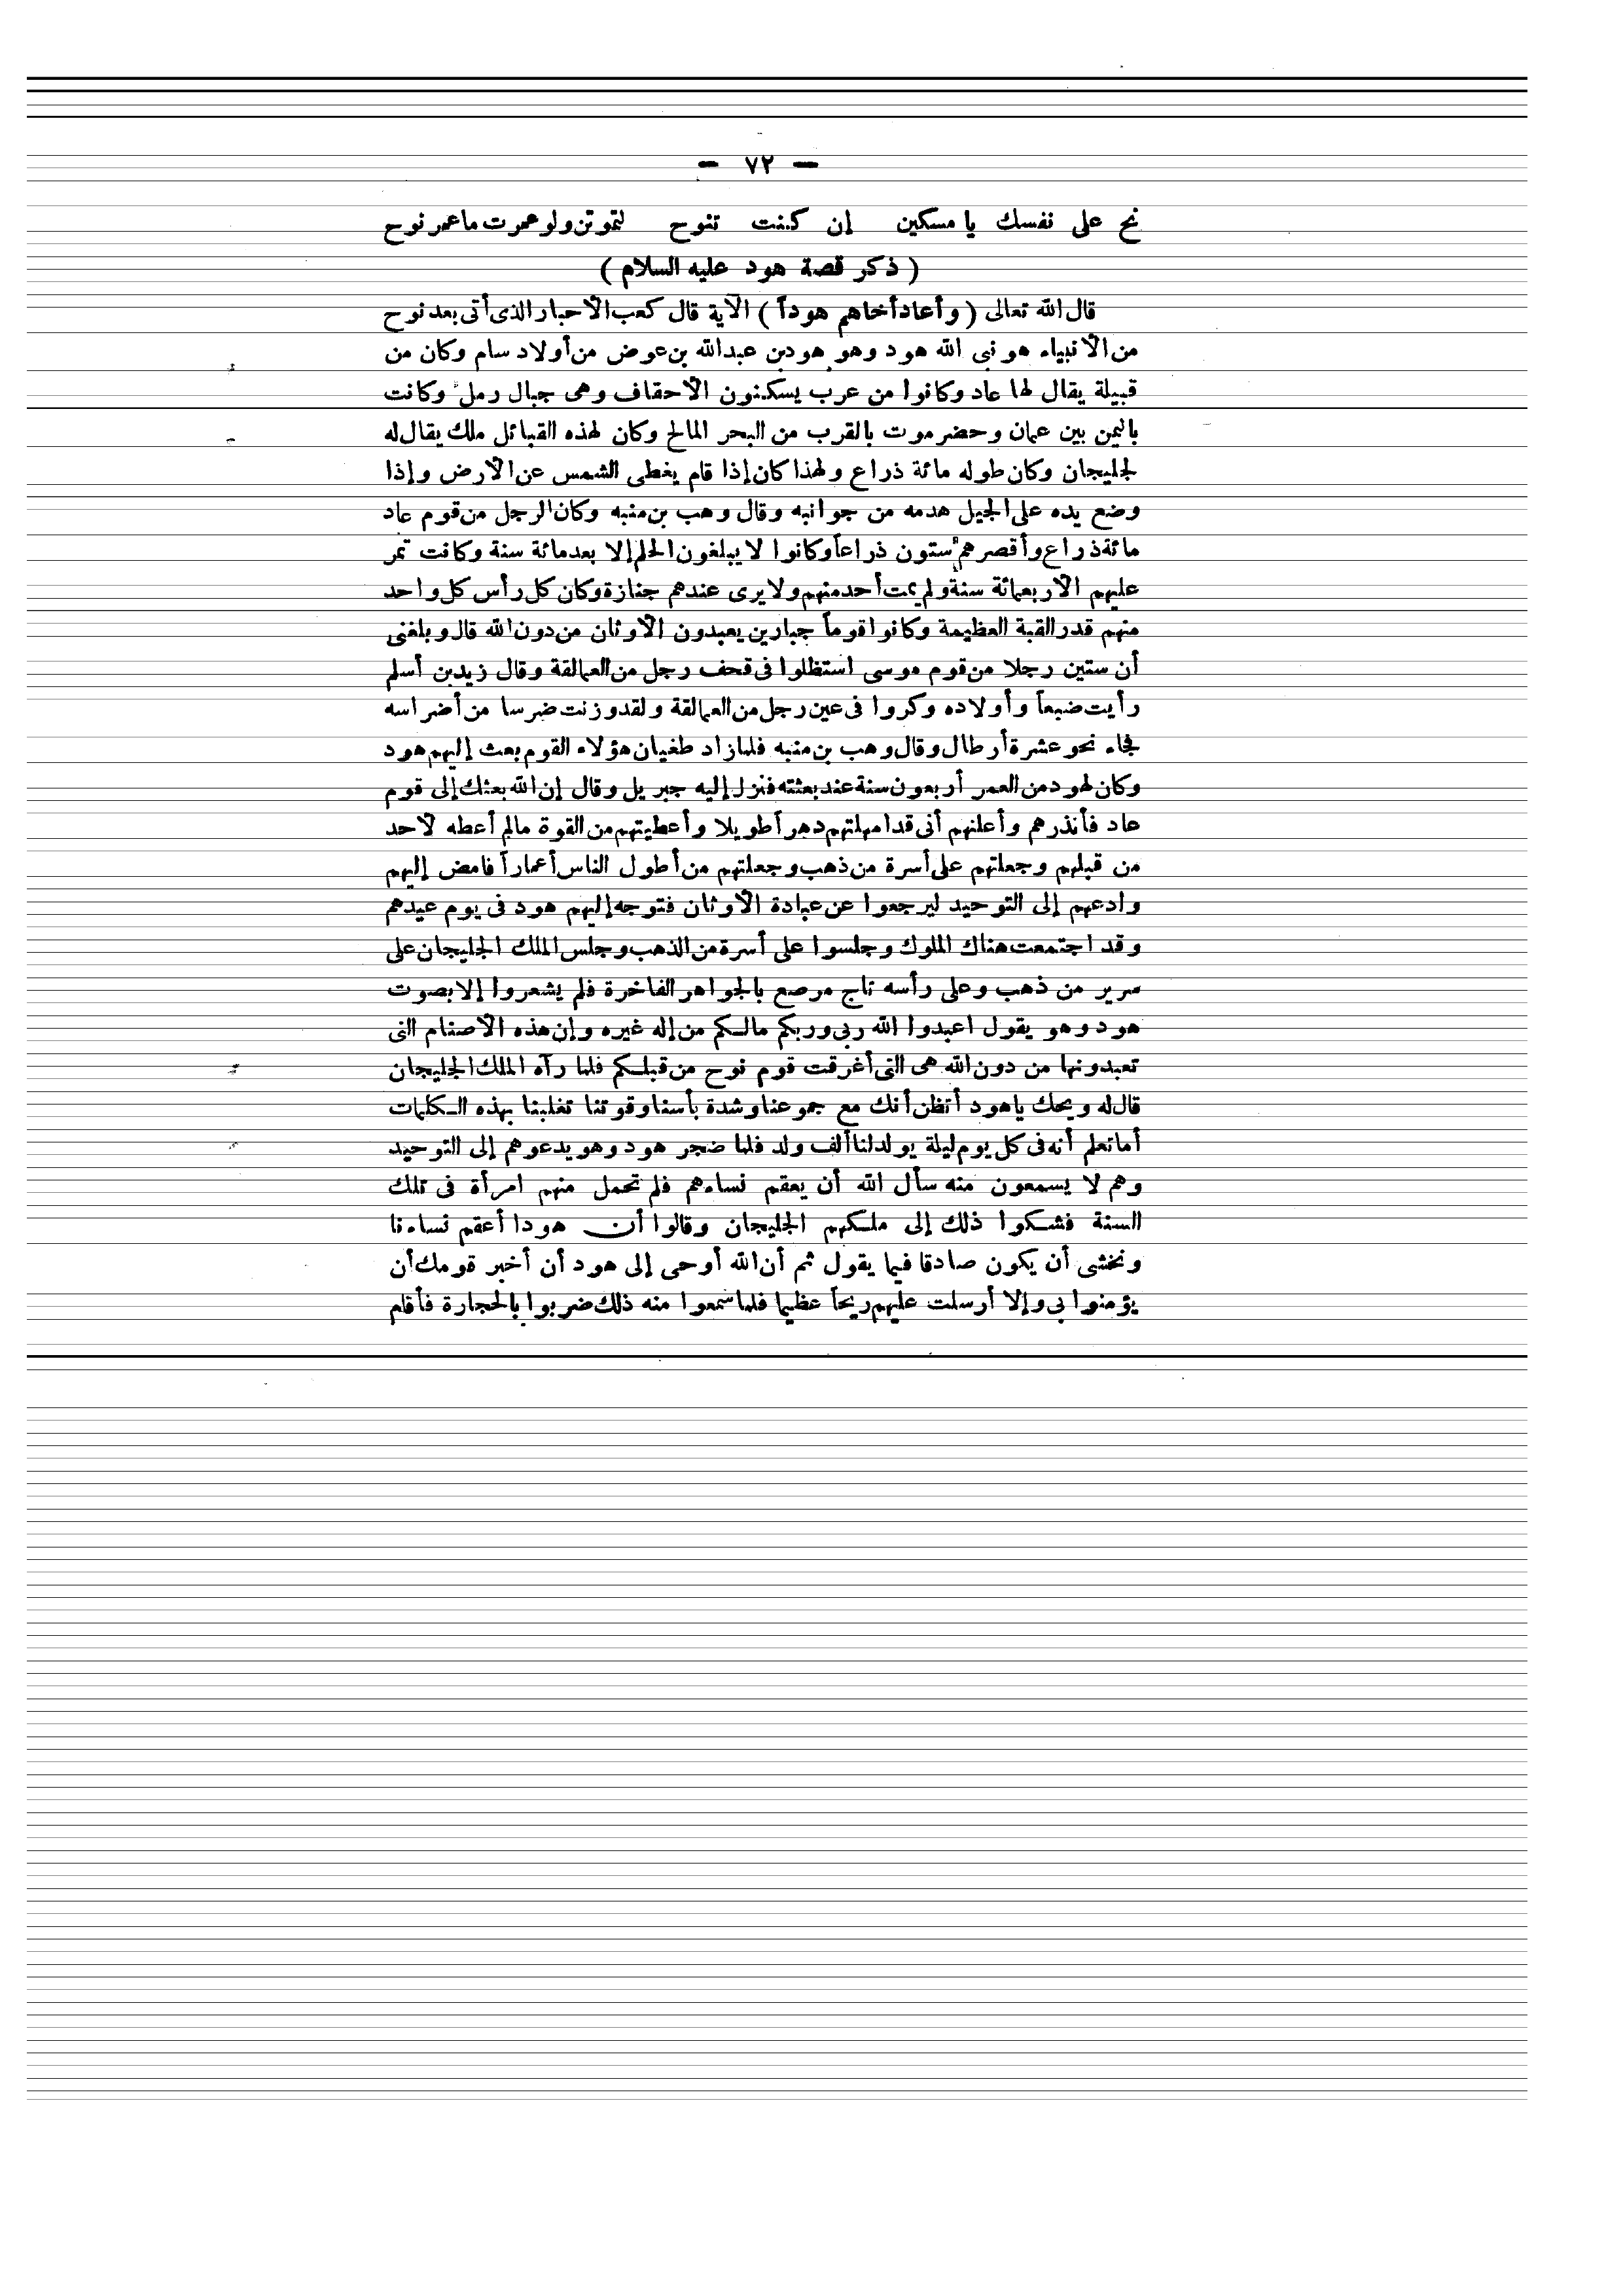 — ٧٢ —
نح على نفسك يا مسكين إن كنت تنوح لتموتن ولو عمرت ما عمر نوح
( ذكر قصة هود عليه السلام )
قال الله تعالى ( وأعاد أخاهم هوداً ) الآية قال كعب الأحبار الذى أتى بعد نوح
من الأنبياء هو نبى الله هود وهو هود بن عبد الله بن عوض من أولاد سام وكان من
قبيلة يقال لها عاد وكانوا من عرب يسكنون الأحقاف وهى جبال رمل وكانت
باليمن بين عمان وحضرموت بالقرب من البحر المالح وكان لهذه القبائل ملك يقال له
لجليجان وكان طوله مائة ذراع ولهذا كان إذا قام يغطى الشمس عن الأرض وإذا
وضع يده على الجيل هدمه من جوانبه وقال وهب بن منبه وكان الرجل من قوم عاد
مائة ذراع وأقصرهم ستون ذراعاً وكانوا لا يبلغون الحلم إلا بعد مائة سنة وكانت تمر
عليهم الأربعمائة سنة ولم يمت أحد منهم ولا يرى عندهم جنازة وكان كل رأس كل واحد
منهم قدر القبة العظيمة وكانوا قوماً جبارين يعبدون الأوثان من دون الله قال وبلغنى
أن ستين رجلا من قوم موسى استظلوا فى قحف رجل من العمالقة وقال زيد بن أسلم
رأيت ضبعاً وأولاده وكروا فى عين رجل من العمالقة ولقد وزنت ضرسا من أضراسه
فجاء نحو عشرة أرطال وقال وهب بن منبه فلما زاد طغيان هؤلاء القوم بعث إليهم هود
وكان لهود من العمر أربعون سنة عند بعثته فنزل إليه جبريل وقال إن الله بعثك إلى قوم
عاد فأنذرهم وأعلنهم أنى قد امهلتهم دهراً طويلا وأعطيتهم من القوة مالم أعطه لأحد
من قبلهم وجعلتهم على أسرة من ذهب وجعلتهم من أطول الناس أعماراً فامض إليهم
وادعهم إلى التوحيد ليرجعوا عن عبادة الأوثان فتوجه إليهم هود فى يوم عيدهم
وقد اجتمعت هناك الملوك وجلسوا على أسرة من الذهب وجلس الملك الجليجان على
سرير من ذهب وعلى رأسه تاج مرصع بالجواهر الفاخرة فلم يشعروا إلا بصوت
هود وهو يقول اعبدوا الله ربى وربكم مالكم من إله غيره وإن هذه الأصنام التى
تعبدونها من دون الله هى التى أغرقت قوم نوح من قبلكم فلما رآه الملك الجليجان
قال له ويحك يا هود أتظن أنك مع جموعنا وشدة بأسنا وقوتنا تغلبنا بهذه الكلمات
أما تعلم أنه فى كل يوم ليلة يولد لنا ألف ولد فلما ضجر هود وهو يدعوهم إلى التوحيد
وهم لا يسمعون منه سأل الله أن يعقم نساءهم فلم تحمل منهم امرأة فى تلك
السنة فشكوا ذلك إلى ملكهم الجليجان وقالوا أن هودا أعقم نساءنا
ونخشى أن يكون صادقا فيما يقول ثم أن الله أوحى إلى هود أن أخبر قومك أن
يؤمنوا بى وإلا أرسلت عليهم ريحاً عظيما فلما سمعوا منه ذلك ضربوا بالحجارة فأقام